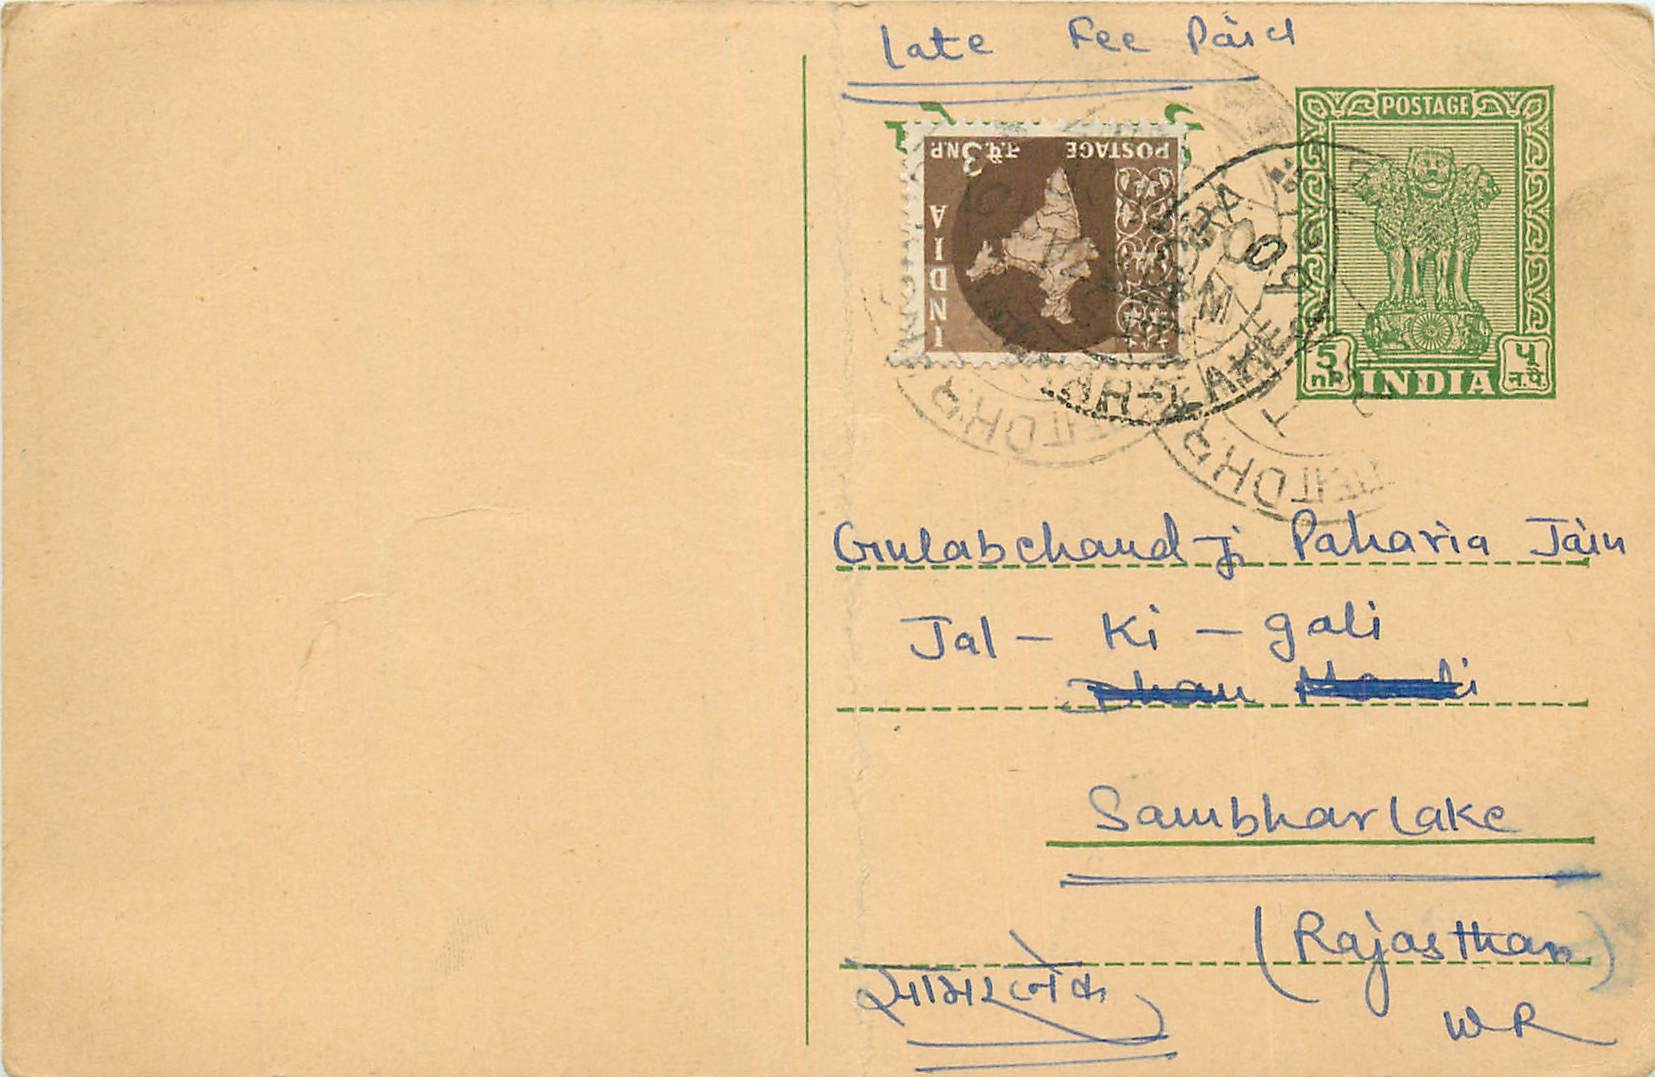 Late Fee Paid
POSTAGE
5 nP INDIA ५ न.पै.
POSTAGE न.पै.3 NP.
INDIA
Gulabchand-ji Paharia Jain
Jal - Ki - gali
Dhan Mandi
Sambhar Lake
(Rajasthan)
सांभरलेक
WR